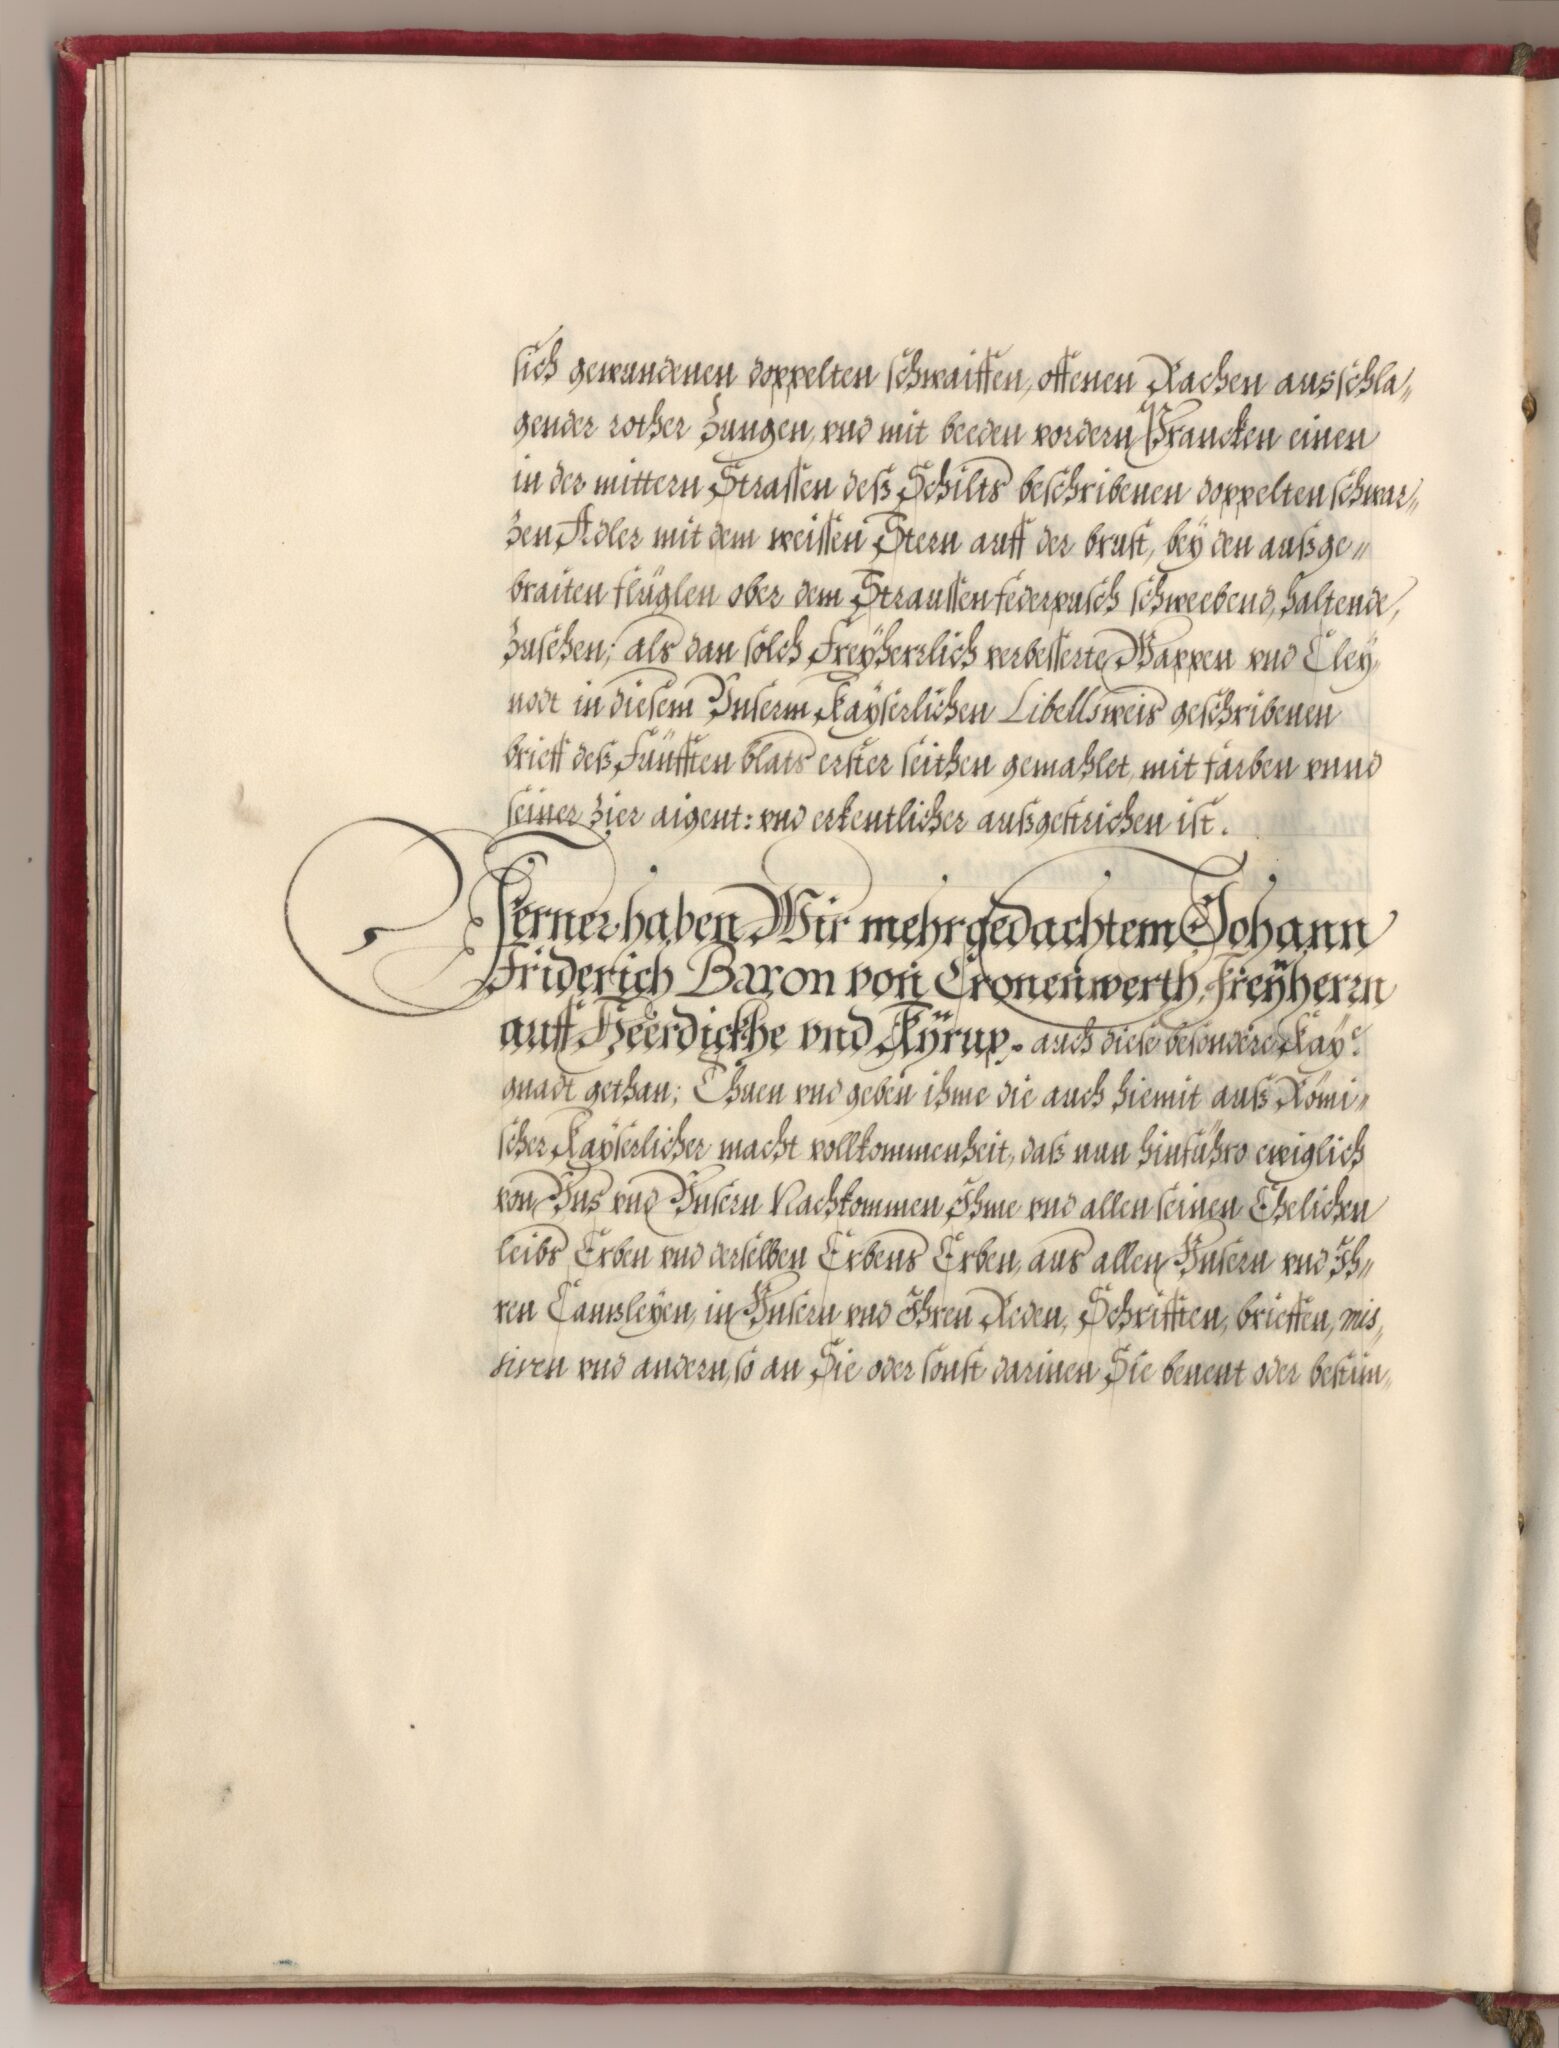 sich gewundenen doppelten schwaiffen, offenen Rachen ausschla„
gender rother Zungen, vnd mit beeden vordern Prancken einen
in der mittern Strassen deß Schilts beschribenen doppelten schwar„
zen Adler mit dem weissen Stern auff der brust, bey den außge„
braiten flüglen ober dem Straussenfederpusch schweebend, haltende,
Zusehen; als dan solch Freyherrlich verbesserte Wappen vnd Cley„
nodt in diesem Vnserm Kayserlichen Libellsweis geschribenen
brieff deß Fünfften blats erster seithen gemahlet, mit farben vnnd
seiner Zier aigent: vnd erkentlicher außgestrichen ist.
Ferner haben Wir mehrgedachtem Johann
Friderich Baron von Cronenwerth, Freyherrn
auff Heerdickhe vnd Kÿrup. auch diese besondere Kaye.
gnadt gethan; Thuen vnd geben ihme die auch hiemit auß Römi„
scher Kayserlicher macht vollkommenheit, daß nun hinführo ewiglich
von Vns vnd Vnsern Nachkommen Ihme vnd allen seinen Ehelichen
leibs Erben vnd derselben Erbens Erben, aus allen Vnsern vnd Ih„
ren Canzleyen, in Vnsern vnd Ihren Reden, Schrifften, brieffen, mis„
siven vnd andern, so an Sie oder sonst darinen Sie benent oder bestim„